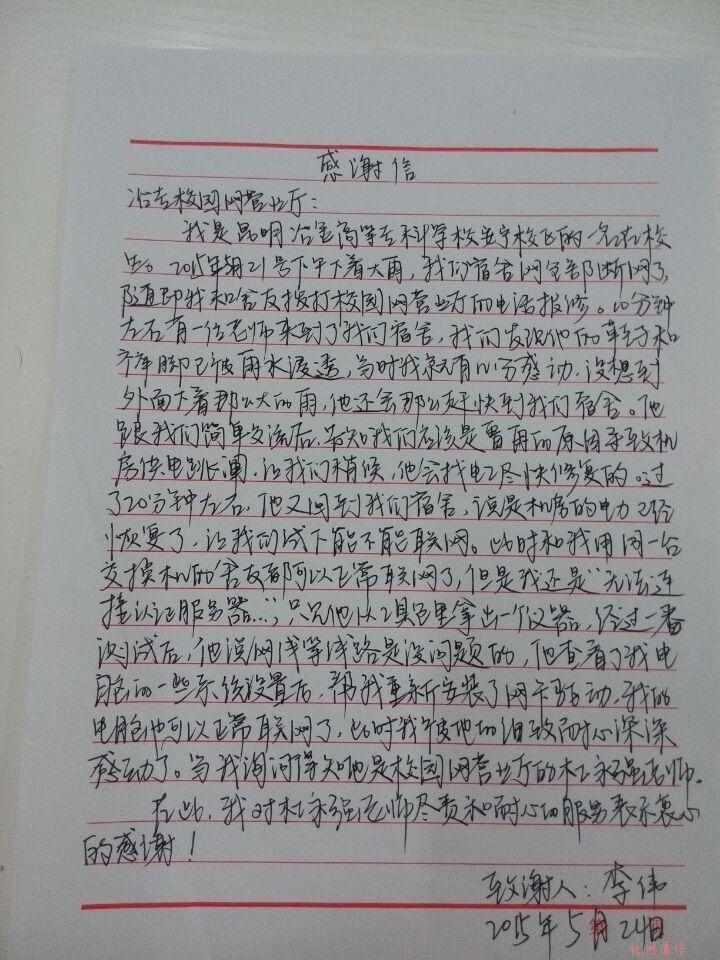 感谢信
冶专校园网营业厅：
我是昆明冶金高等专科学校安宁校区的一名在校
生。2015年5月21号下午下着大雨，我们宿舍网全部断网了，
随即我和舍友拨打校园网营业厅的电话报修。10分钟
左右有一位老师来到了我们宿舍，我们发现他的鞋子和
裤脚已被雨水浸透，当时我就有八分感动，没想到
外面下着那么大的雨，他还会那么赶快到我们宿舍。他
跟我们简单交流后，告知我们应该是雷雨的原因导致机
房供电跳闸，让我们稍候，他会找电工尽快修复的。过
了20分钟左右，他又回到我们宿舍，说是机房的电力已经
恢复了，让我们试下能不能联网。此时和我用同一台
交换机的舍友都可以正常联网了，但是我还是“无法连
接认证服务器...”；只见他从工具包里拿出一个仪器，经过一番
测试后，他说网线等线路是没问题的，他查看了我电
脑的一些系统设置后，帮我重新安装了网卡驱动，我的
电脑也可以正常联网了，此时我被他的细致耐心深深
感动了。当我询问得知他是校园网营业厅的杜永强老师。
在此，我对杜永强老师尽责和耐心的服务表示衷心
的感谢！
致谢人：李伟
2015年5月24日